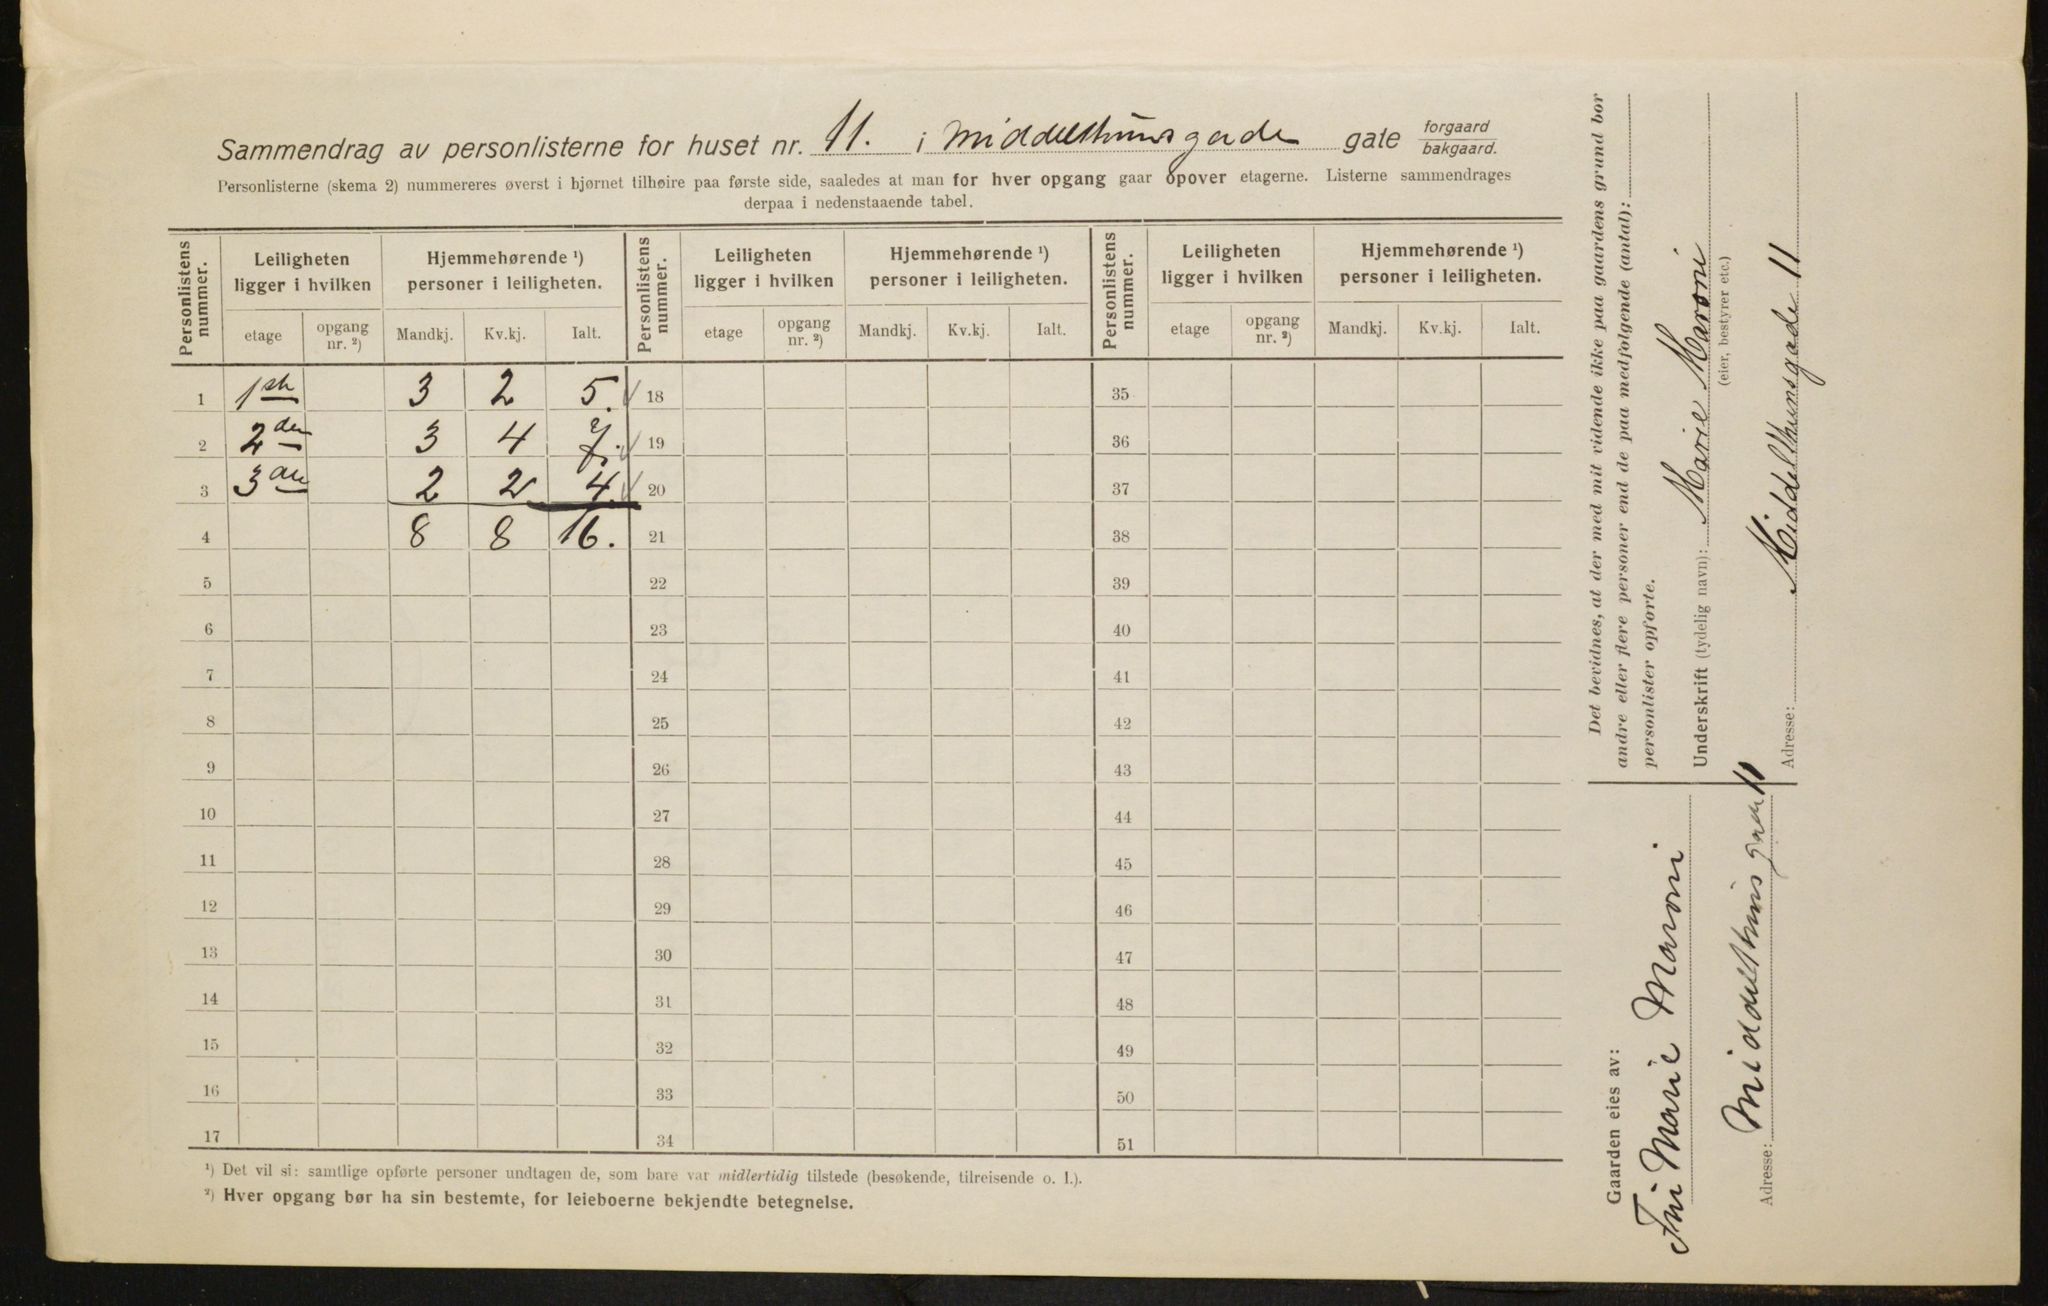 Sammendrag av personlisterne for huset nr. 11. i Middelthunsgade gate forgaard bakgaard.
Personlisterne (skema 2) nummereres øverst i hjørnet tilhøire paa første side, saaledes at man for hver opgang gaar opover etagerne. Listerne sammendrages
derpaa i nedenstaaende tabel.
Personlistens nummer. Leiligheten ligger i hvilken Hjemmehørende ¹) personer i leiligheten. Personlistens nummer. Leiligheten ligger i hvilken Hjemmehørende ¹) personer i leiligheten. Personlistens nummer. Leiligheten ligger i hvilken Hjemmehørende ¹) personer i leiligheten.
etage opgang nr. ²) Mandkj. Kv.kj. Ialt. etage opgang nr. ²) Mandkj. Kv.kj. Ialt. etage opgang nr. ²) Mandkj. Kv.kj. Ialt.
1 1ste 3 2 5. 18 35
2 2den 3 4 7. 19 36
3 3die 2 2 4. 20 37
4 8 8 16. 21 38
5 22 39
6 23 40
7 24 41
8 25 42
9 26 43
10 27 44
11 28 45
12 29 46
13 30 47
14 31 48
15 32 49
16 33 50
17 34 51
¹) Det vil si: samtlige opførte personer undtagen de, som bare var midlertidig tilstede (besøkende, tilreisende o. l.).
²) Hver opgang bør ha sin bestemte, for leieboerne bekjendte betegnelse.
Det bevidnes, at der med mit vidende ikke paa gaardens grund bor
andre eller flere personer end de paa medfølgende (antal):
personlister opførte.
Underskrift (tydelig navn): Marie Maroni
(eier, bestyrer etc.)
Adresse: Middelthunsgade 11
Gaarden eies av:
Marie Maroni
Adresse: Middelthunsgaden 11